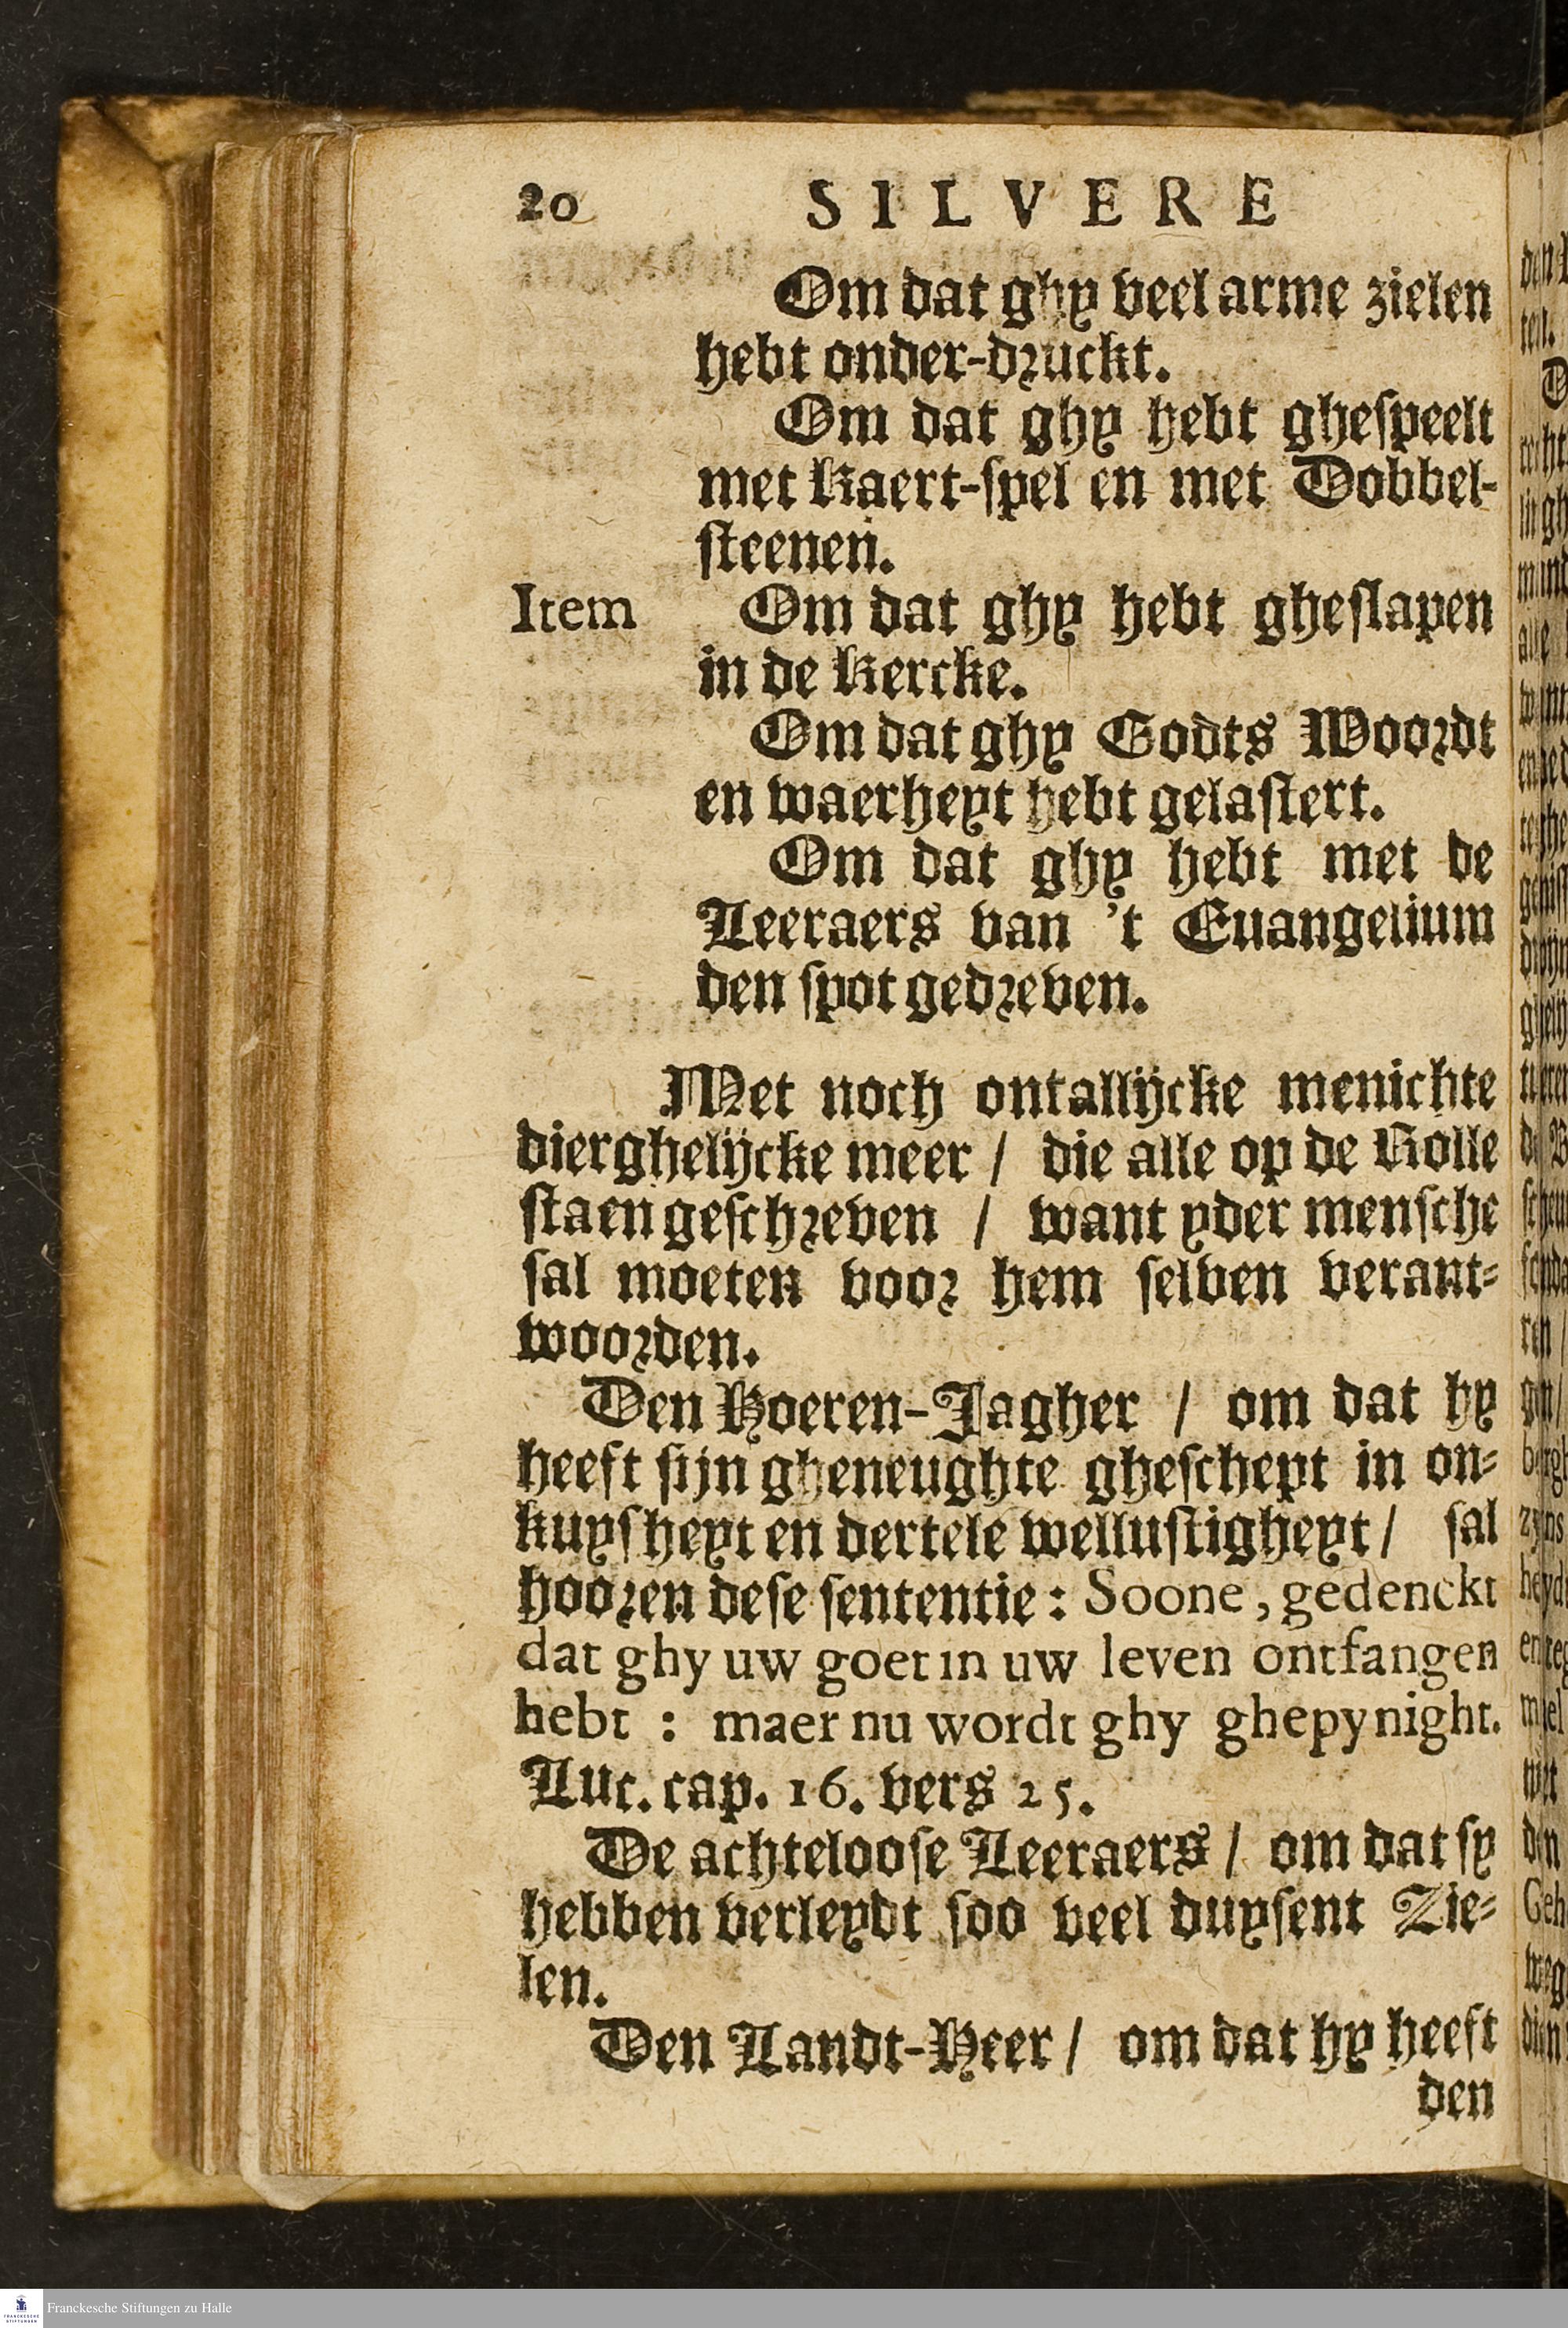 20 SILVERE
Om dat ghy veel arme zielen
hebt onder-druckt.
Om dat ghy hebt ghespeelt
met Kaert-spel en met Dobbel-
steenen.
Item Om dat ghy hebt gheslapen
in de Kercke.
Om dat ghy Godts Woordt
en waerheyt hebt gelastert.
Om dat ghy hebt met de
Leeraers van 't Euangelium
den spot gedreven.
Met noch ontallijcke menichte
dierghelijcke meer / die alle op de Rolle
staen geschreven / want yder mensche
sal moeten voor hem selven verant-
woorden.
Den Hoeren-Jagher / om dat hy
heeft sijn gheneughte gheschept in on-
kuysheyt en dertele wellustigheyt / sal
hooren dese sententie: Soone, gedenckt
dat ghy uw goet in uw leven ontfangen
hebt : maer nu wordt ghy ghepynight.
Luc. cap. 16. vers 25.
De achteloose Leeraers / om dat sy
hebben verleydt soo veel duysent Zie-
len.
Den Landt-Heer / om dat hy heeft
den
Franckesche Stiftungen zu Halle